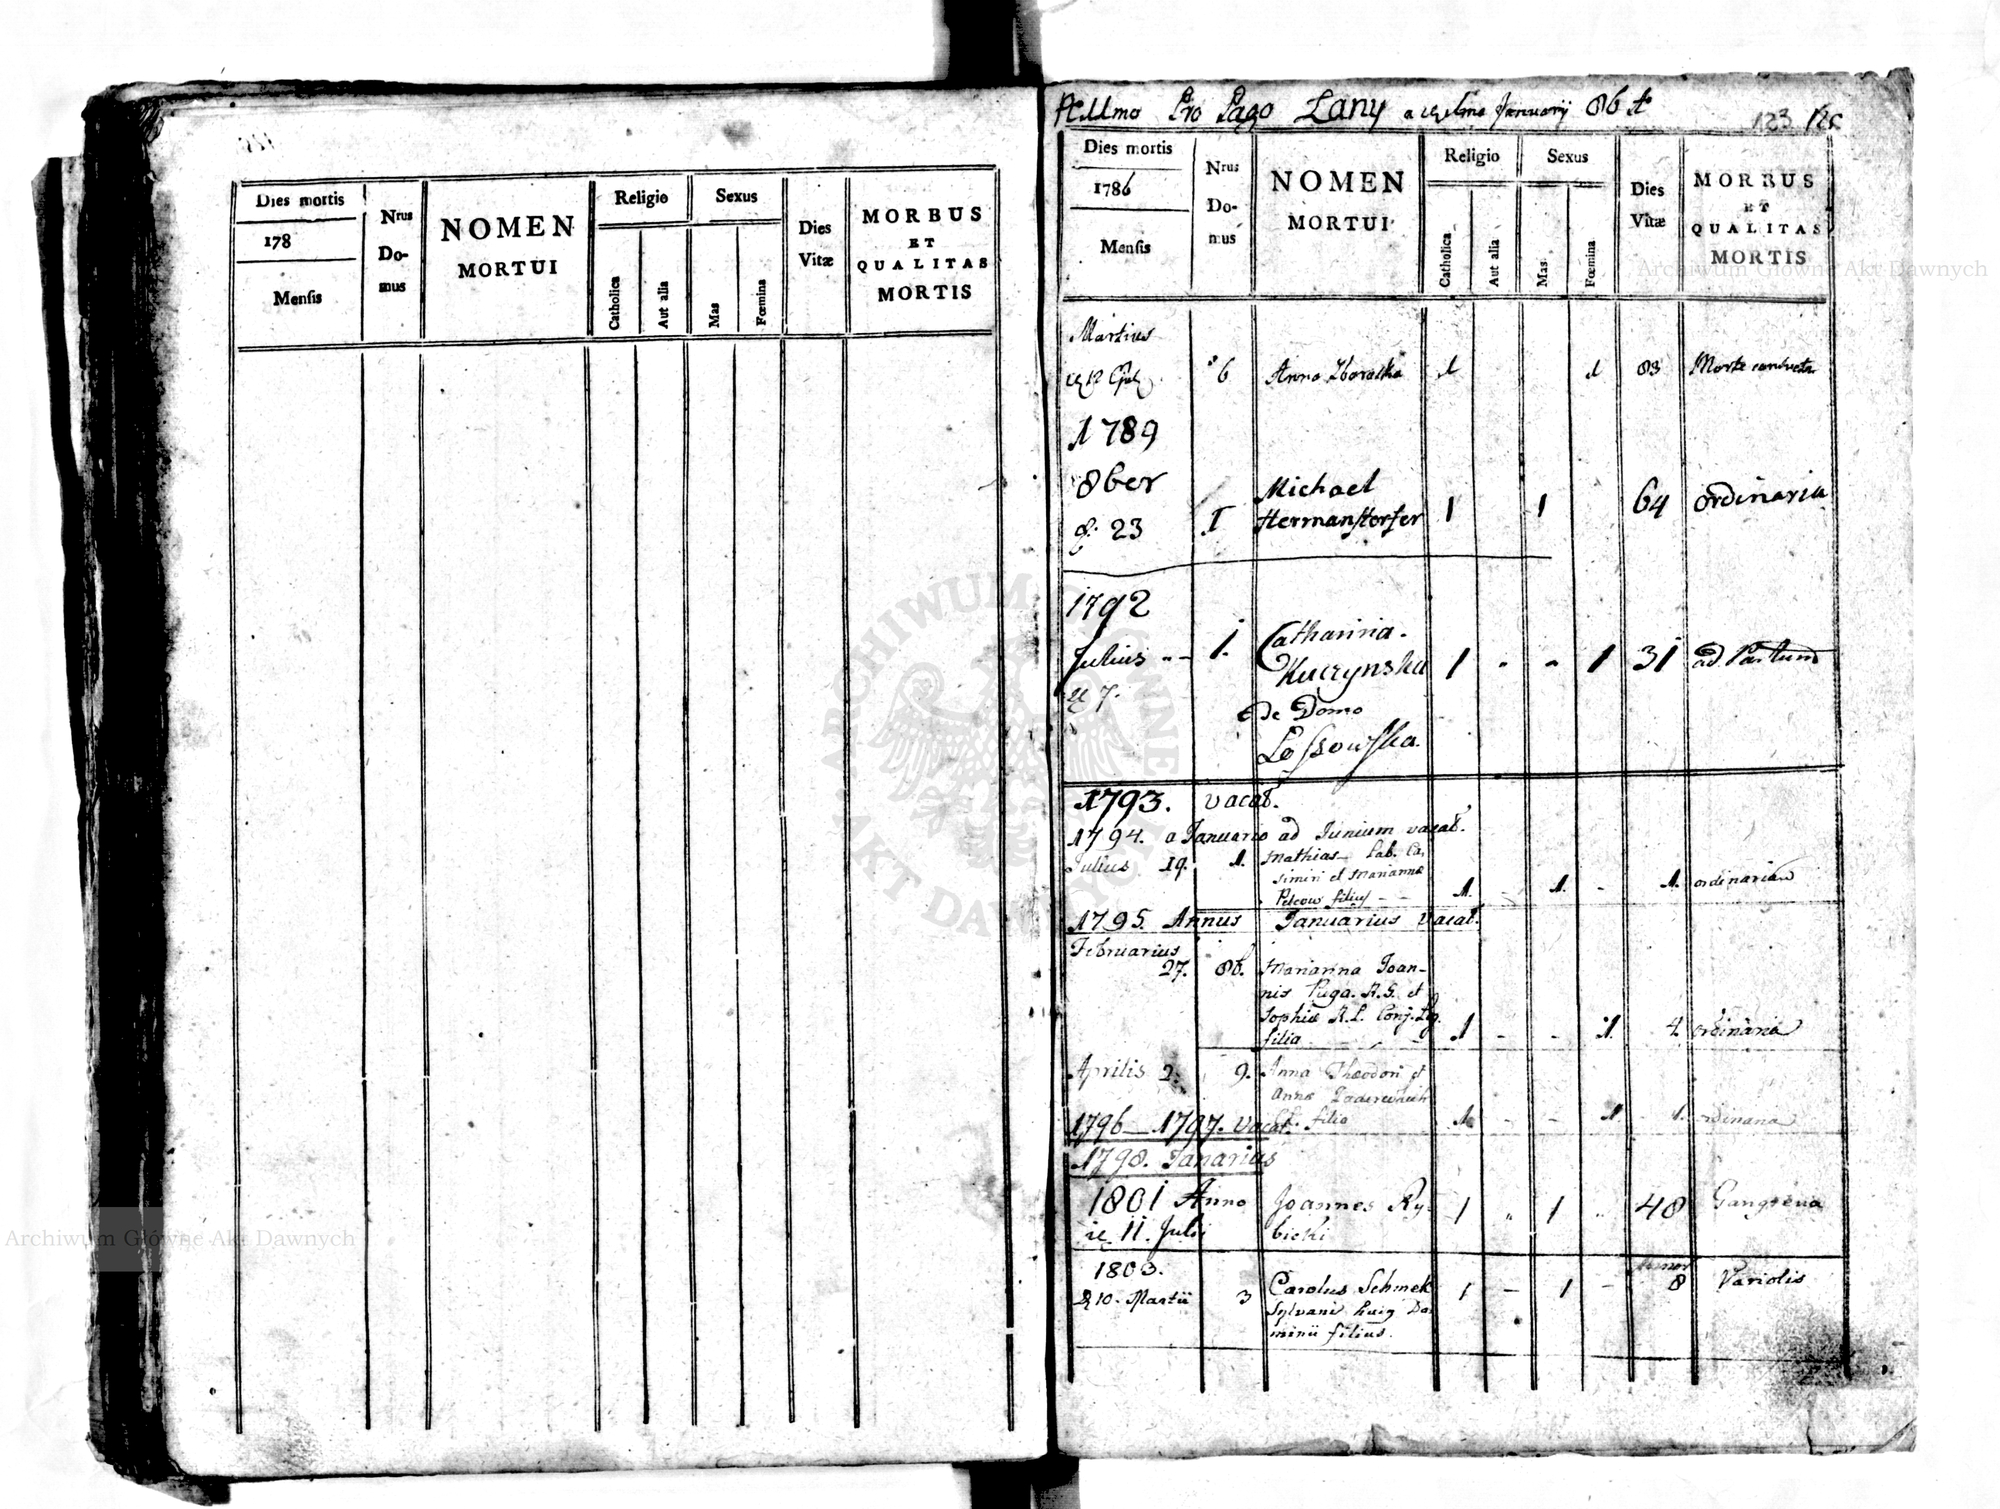 Dies mortis
178
Mensis
Nrus Domus
NOMEN
MORTUI
Religio
Catholica
Aut alia
Sexus
Mas
Fœmina
Dies Vitæ
MORBUS
ET
QUALITAS
MORTIS
Pro Pago Lany a Januarij 86
123
Dies mortis
1786
Mensis
Nrus Domus
NOMEN
MORTUI
Religio
Catholica
Aut alia
Sexus
Mas
Fœmina
Dies Vitæ
MORBUS
ET
QUALITAS
MORTIS
Martius
6 Anna 1 1 83 Morte
1789
8ber Michael
23 I Hermanstorfer 1 1 64 ordinaria
1792
Julius 1. Catharina
7. Kuczynska 1 1 31 ad Partum
de Domo
Lossowska.
1793. vacat.
1794. a Januario ad Junium vacat.
Julius 19. 1. Mathias Lab. Ca-
simiri et Marianna
filius 1. 1. 1. ordinaria
1795. Annus Januarius vacat.
Februarius
27. 86. Marianna Joan-
nis Puga. R.G. et
Sophia R.L. Conj. Leg.
filia 1 1. 4. ordinaria
Aprilis 2. 9. Anna Theodori et
Anna
filia 1. 1 1. ordinaria
1796 – 1797. vacat.
1798. Janarius
1801 Anno Joannes Ry-
11. Julii bicki 1 1 48 Gangrena
1803.
10. Martii 3 Carolus Schmek 1 – 1 – 8 Variolis
Sylvani Do-
minii filius.
Archiwum Główne Akt Dawnych
Archiwum Główne Akt Dawnych
ARCHIWUM GŁÓWNE AKT DAWNYCH